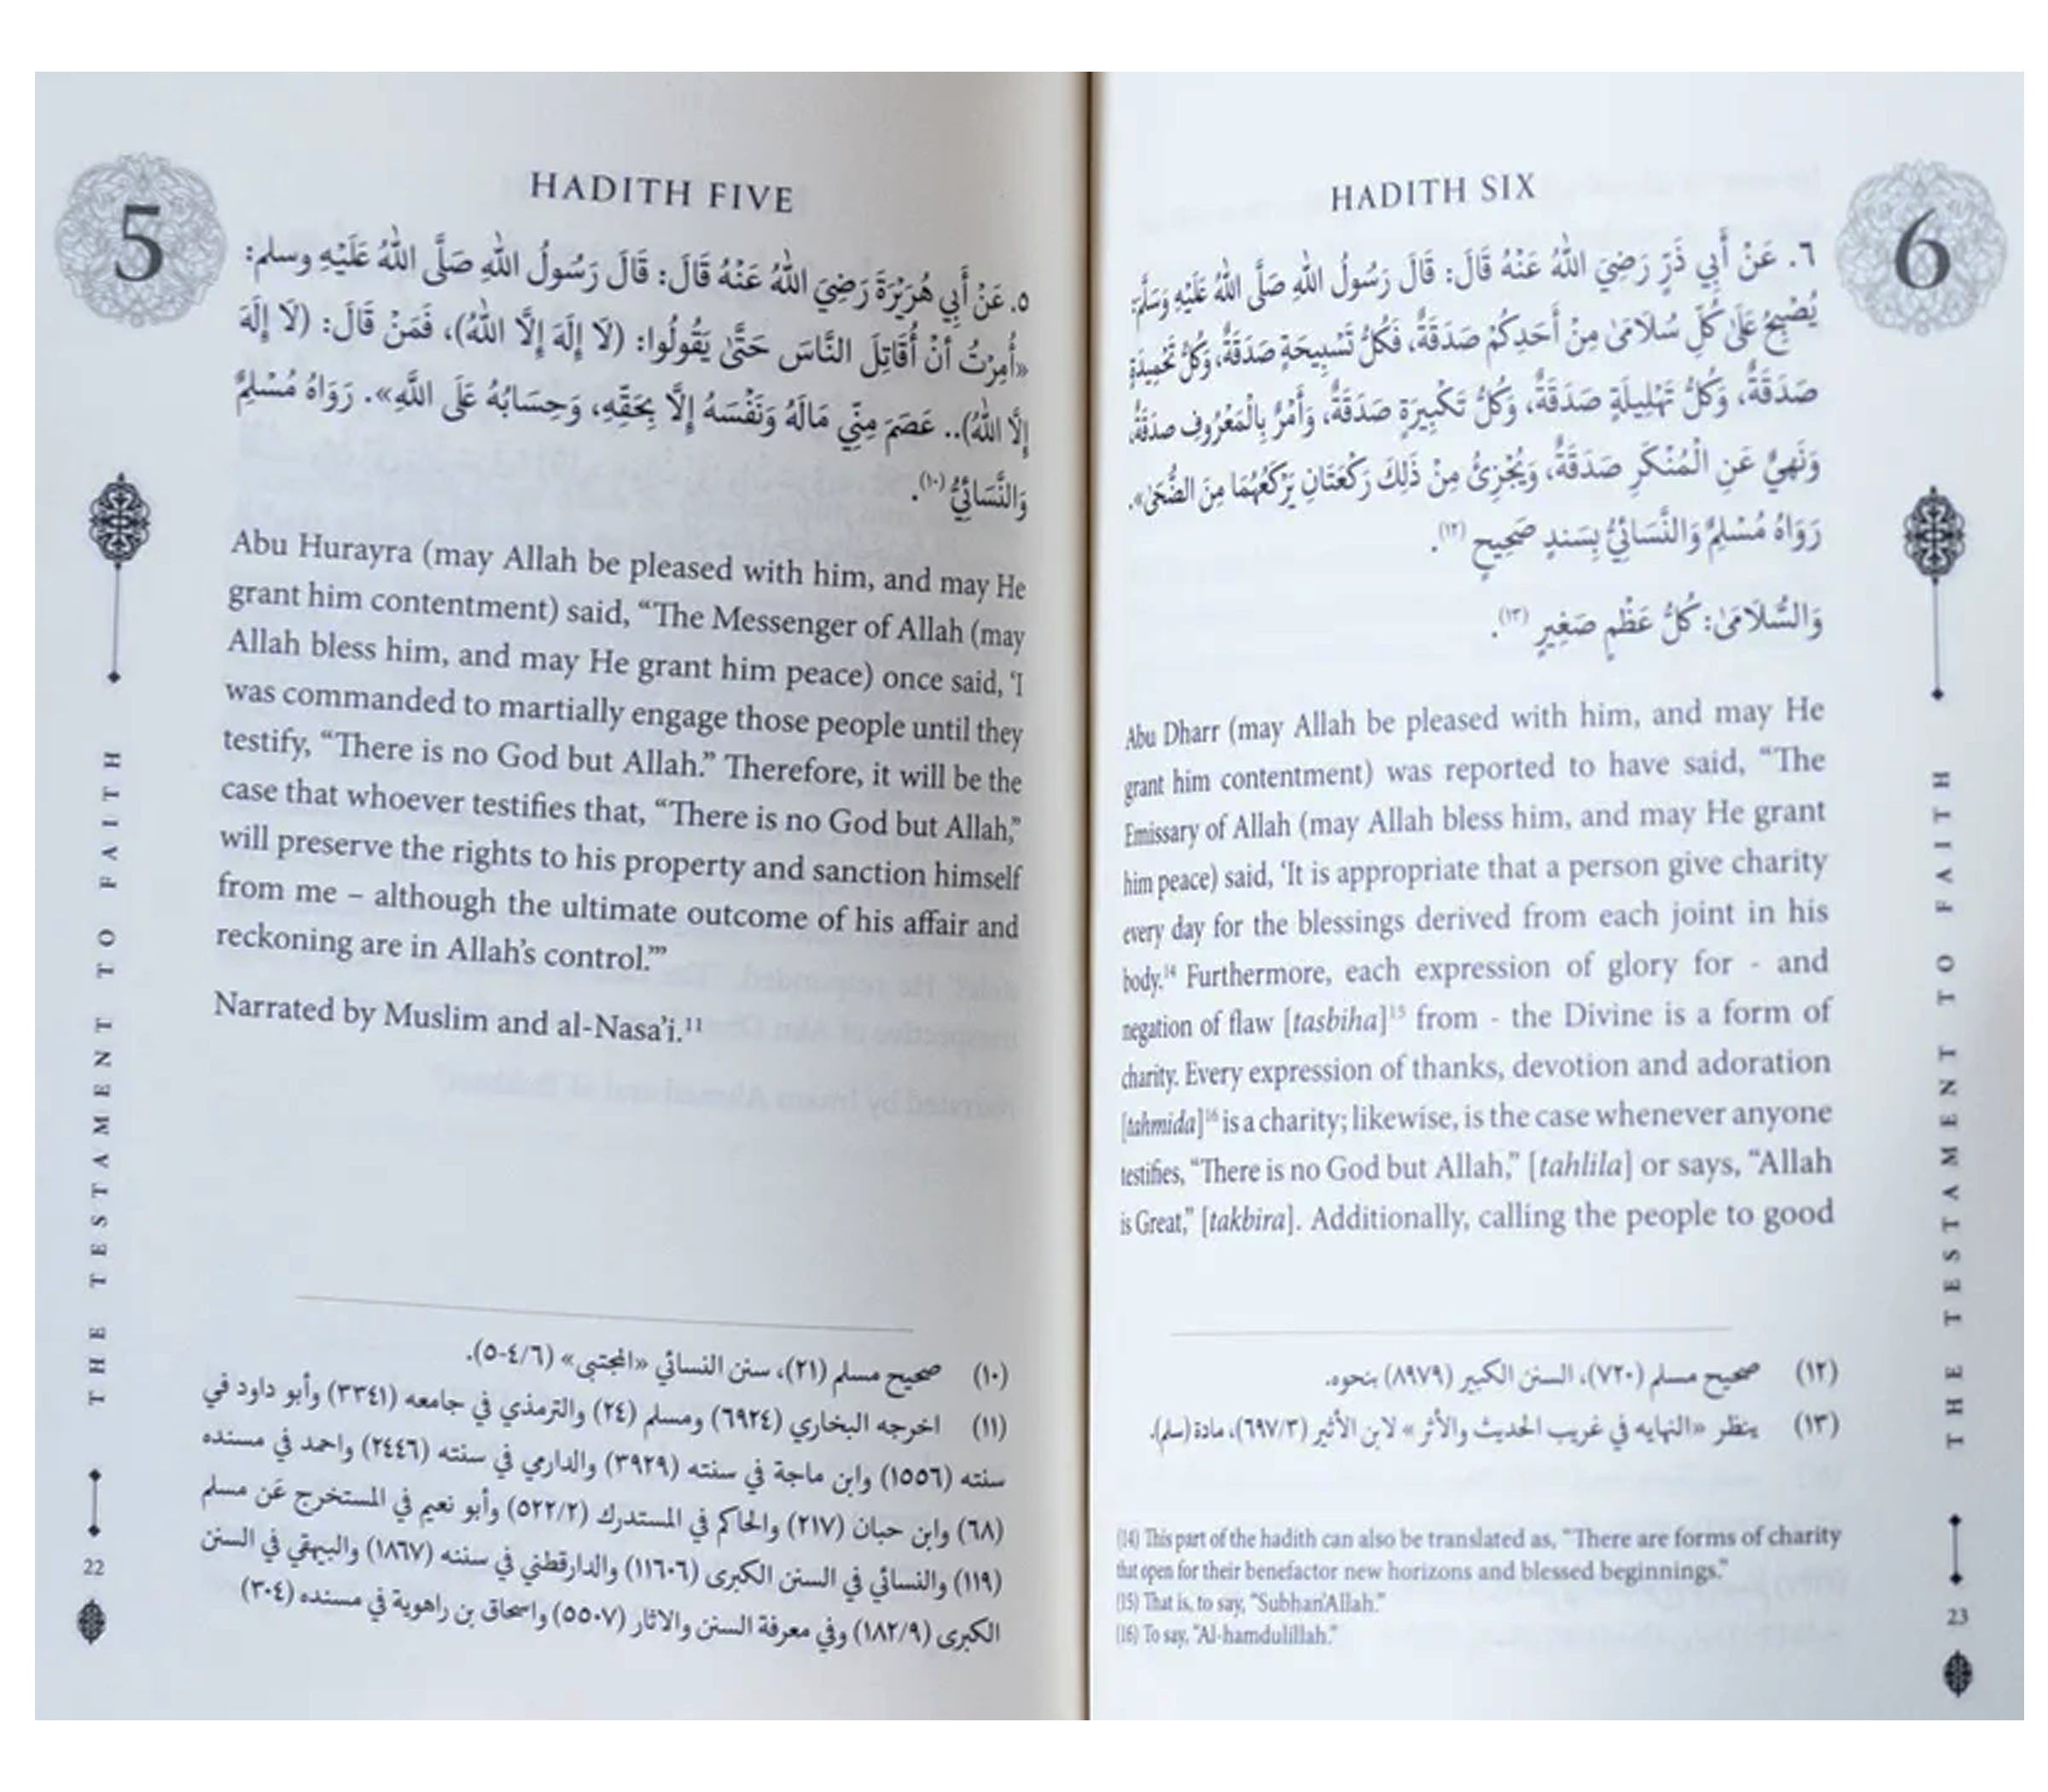 5
HADITH FIVE
٥. عَنْ أَبِي هُرَيْرَةَ رَضِيَ اللهُ عَنْهُ قَالَ: قَالَ رَسُولُ اللهِ صَلَّى اللهُ عَلَيْهِ وسلم:
«أُمِرْتُ أنْ أُقَاتِلَ النَّاسَ حَتَّىٰ يَقُولُوا: (لَا إِلَهَ إِلَّا اللهُ)، فَمَنْ قَالَ: (لَا إِلَهَ
إِلَّا اللهُ).. عَصَمَ مِنِّي مَالَهُ وَنَفْسَهُ إِلَّا بِحَقِّهِ، وَحِسَابُهُ عَلَى اللَّهِ». رَوَاهُ مُسْلِمٌ
وَالنَّسَائِيُّ (١٠).
Abu Hurayra (may Allah be pleased with him, and may He
grant him contentment) said, “The Messenger of Allah (may
Allah bless him, and may He grant him peace) once said, ‘I
was commanded to martially engage those people until they
testify, “There is no God but Allah.” Therefore, it will be the
case that whoever testifies that, “There is no God but Allah,”
will preserve the rights to his property and sanction himself
from me – although the ultimate outcome of his affair and
reckoning are in Allah’s control.’”
Narrated by Muslim and al-Nasa’i.11
(١٠) صحيح مسلم (٢١)، سنن النسائي «المجتبى» (٥-٤/٦).
(١١) اخرجه البخاري (٦٩٢٤) ومسلم (٢٤) والترمذي في جامعه (٣٣٤١) وأبو داود في
سننه (١٥٥٦) وابن ماجة في سننه (٣٩٢٩) والدارمي في سننه (٢٤٤٦) واحمد في مسنده
(٦٨) وابن حبان (٢١٧) والحاكم في المستدرك (٥٢٢/٢) وأبو نعيم في المستخرج عَن مسلم
(١١٩) والنسائي في السنن الكبرى (١١٦٠٦) والدارقطني في سننه (١٨٦٧) والبيهقي في السنن
الكبرى (١٨٢/٩) وفي معرفة السنن والاثار (٥٥٠٧) واسحاق بن راهوية في مسنده (٣٠٤)
THE TESTAMENT TO FAITH
22
6
HADITH SIX
٦. عَنْ أَبِي ذَرٍّ رَضِيَ اللهُ عَنْهُ قَالَ: قَالَ رَسُولُ اللهِ صَلَّى اللهُ عَلَيْهِ وَسَلَّمَ:
يُصْبِحُ عَلَىٰ كُلِّ سُلَامَىٰ مِنْ أَحَدِكُمْ صَدَقَةٌ، فَكُلُّ تَسْبِيحَةٍ صَدَقَةٌ، وَكُلُّ تَحْمِيدَةٍ
صَدَقَةٌ، وَكُلُّ تَهْلِيلَةٍ صَدَقَةٌ، وَكُلُّ تَكْبِيرَةٍ صَدَقَةٌ، وَأَمْرٌ بِالْمَعْرُوفِ صدَقَةٌ،
وَنَهِيٌ عَنِ الْمُنْكَرِ صَدَقَةٌ، وَيُجْزِئُ مِنْ ذَلِكَ رَكْعَتَانِ يَرْكَعُهُمَا مِنَ الضُّحَىٰ».
رَوَاهُ مُسْلِمٌ وَالنَّسَائِيُّ بِسَندٍ صَحِيحٍ (١٢).
وَالسُّلَامَىٰ: كُلُّ عَظْمٍ صَغِيرٍ (١٣).
Abu Dharr (may Allah be pleased with him, and may He
grant him contentment) was reported to have said, “The
Emissary of Allah (may Allah bless him, and may He grant
him peace) said, ‘It is appropriate that a person give charity
every day for the blessings derived from each joint in his
body.14 Furthermore, each expression of glory for - and
negation of flaw [tasbiha]15 from - the Divine is a form of
charity. Every expression of thanks, devotion and adoration
[tahmida]16 is a charity; likewise, is the case whenever anyone
testifies, “There is no God but Allah,” [tahlila] or says, “Allah
is Great,” [takbira]. Additionally, calling the people to good
(١٢) صحيح مسلم (٧٢٠)، السنن الكبير (٨٩٧٩) بنحوه.
(١٣) ينظر «النهايه في غريب الحديث والأثر» لابن الأثير (٦٩٧/٣)، مادة (سلم).
(14) This part of the hadith can also be translated as, “There are forms of charity
that open for their benefactor new horizons and blessed beginnings.”
(15) That is, to say, “Subhan’Allah.”
(16) To say, “Al-hamdulillah.”
THE TESTAMENT TO FAITH
23